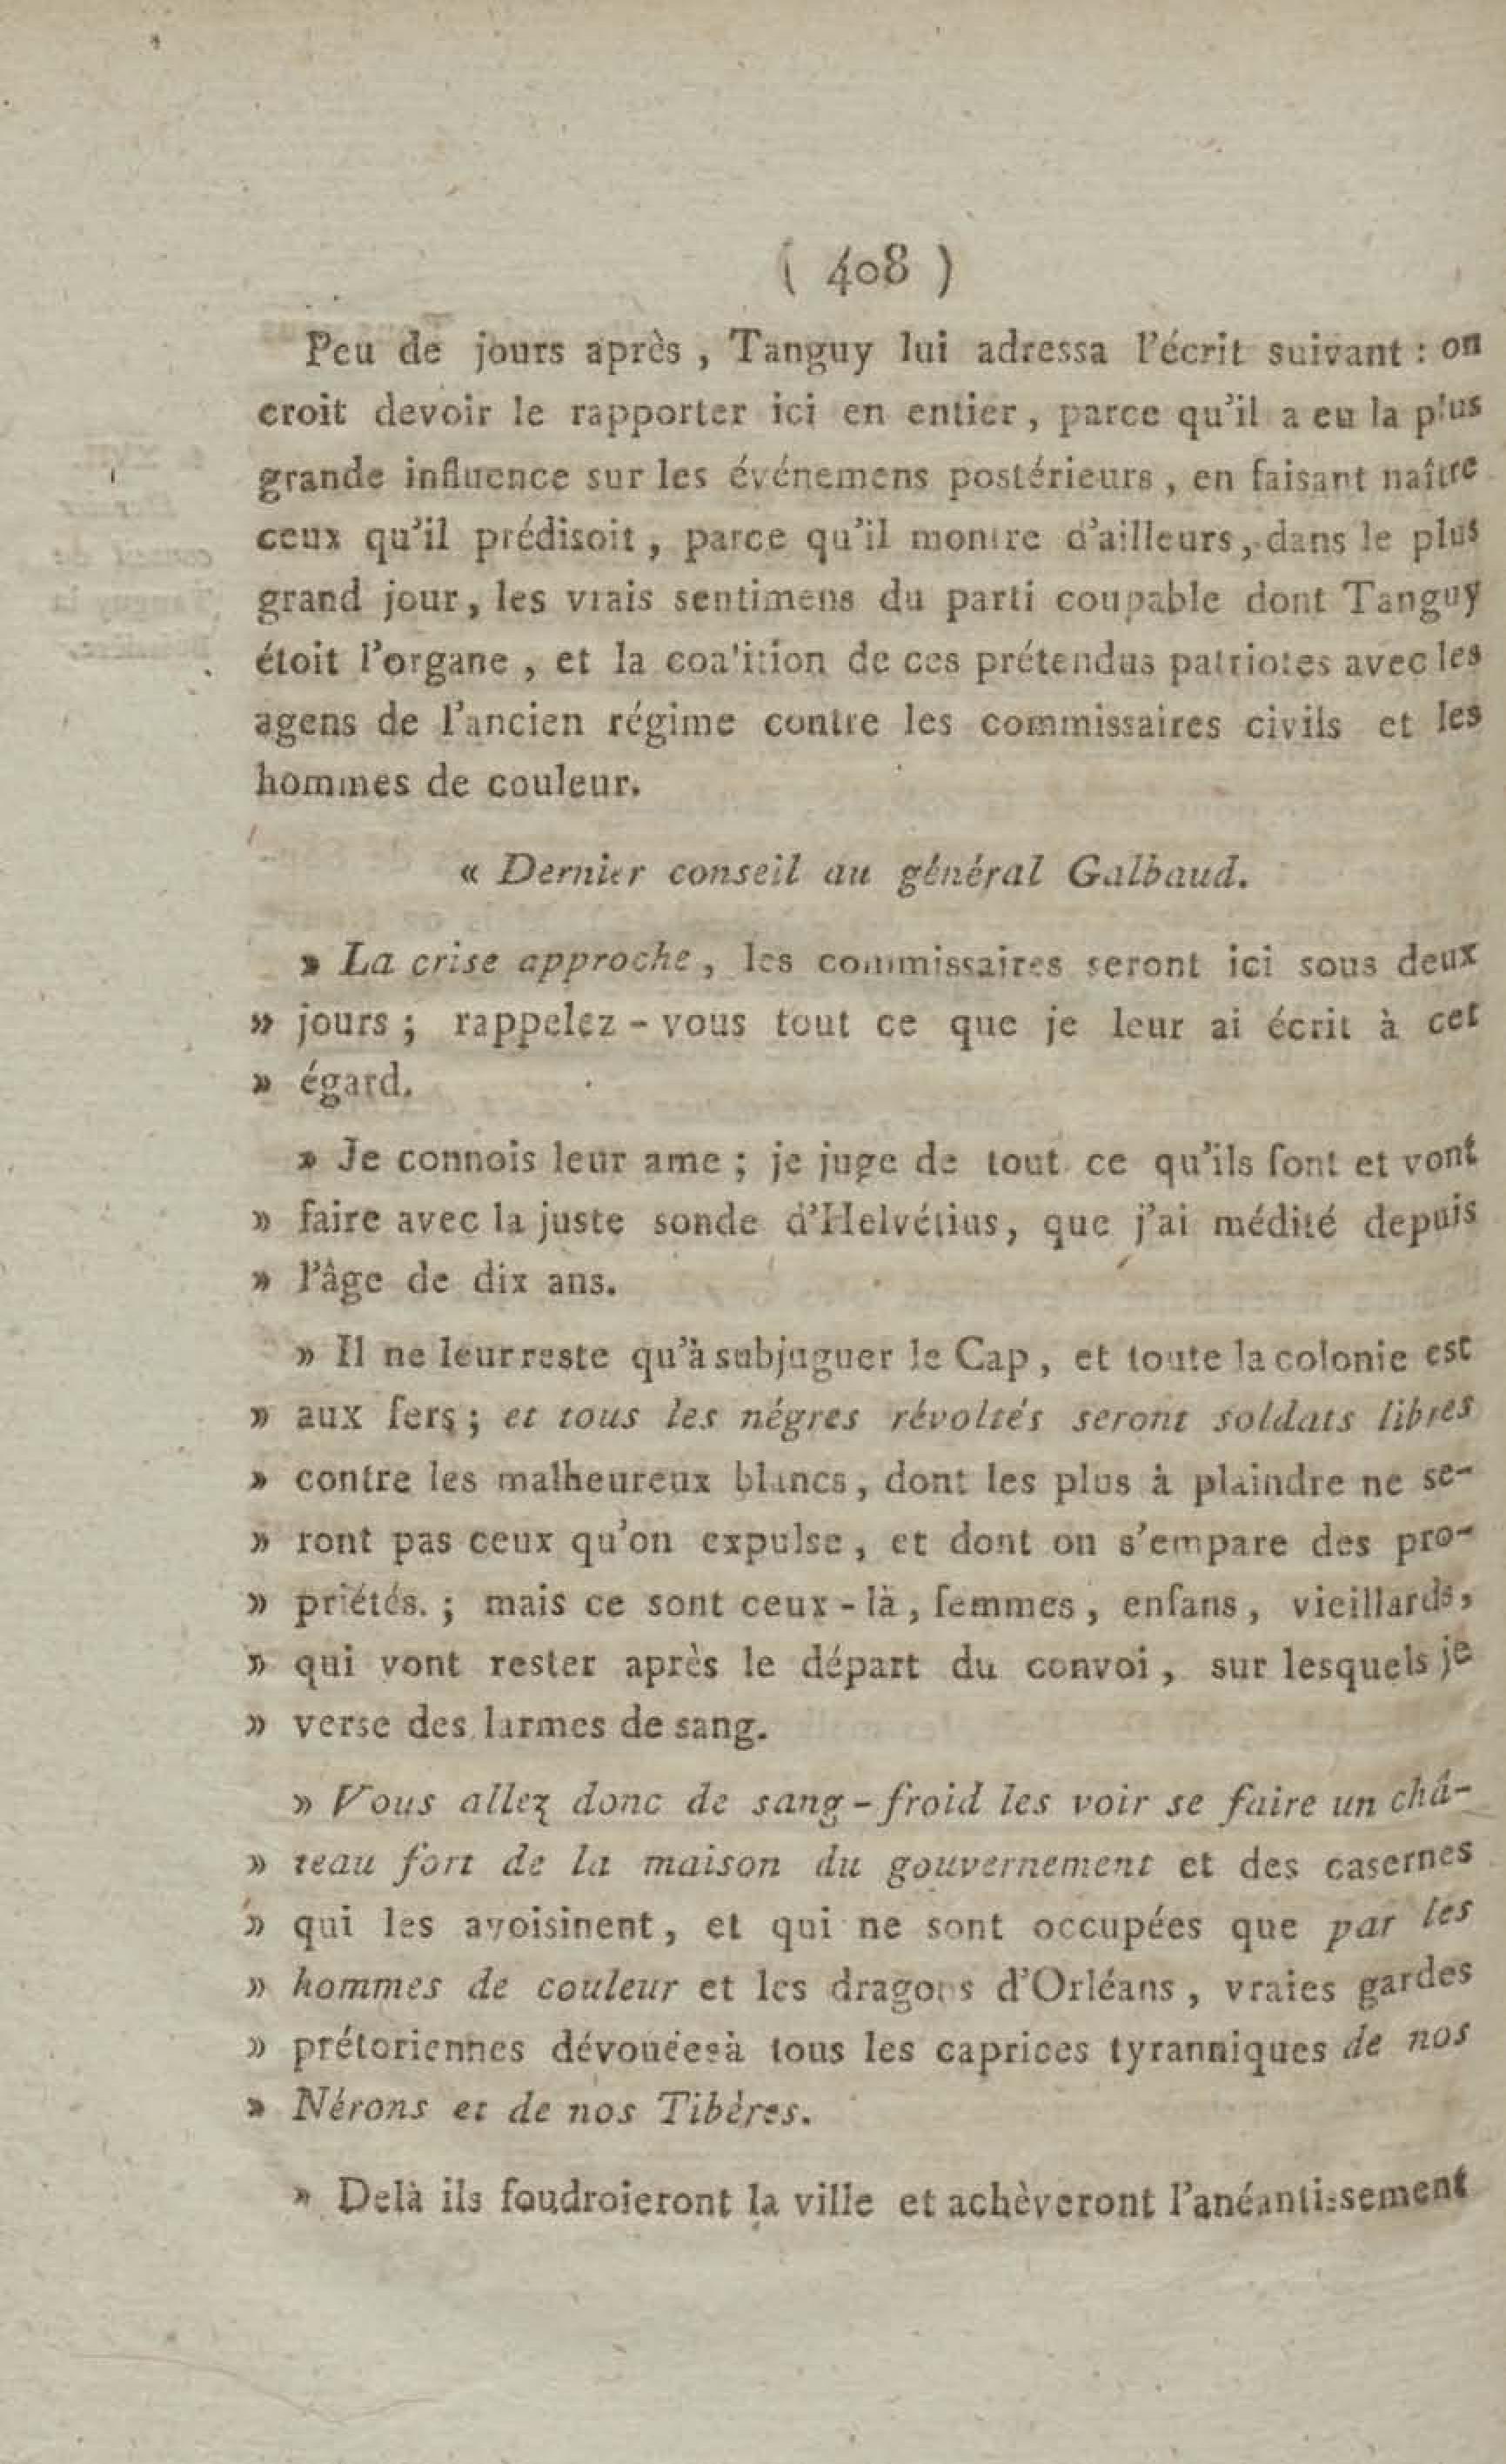 ( 408 )
Peu de jours après , Tanguy lui adressa l'écrit suivant : on
croit devoir le rapporter ici en entier , parce qu'il a eu la plus
grande influence sur les événemens postérieurs , en faisant naître
ceux qu'il prédisoit , parce qu'il montre d'ailleurs, dans le plus
grand jour , les vrais sentimens du parti coupable dont Tanguy
étoit l'organe , et la coalition de ces prétendus patriotes avec les
agens de l'ancien régime contre les commissaires civils et les
hommes de couleur.
« Dernier conseil au général Galbaud.
» La crise approche , les commissaires seront ici sous deux
» jours ; rappelez - vous tout ce que je leur ai écrit à cet
» égard.
» Je connois leur ame ; je juge de tout ce qu'ils font et vont
» faire avec la juste sonde d'Helvétius, que j'ai médité depuis
» l'âge de dix ans.
» Il ne leur reste qu'à subjuguer le Cap , et toute la colonie est
» aux fers ; et tous les négres révoltés seront soldats libres
» contre les malheureux blancs , dont les plus à plaindre ne se-
» ront pas ceux qu'on expulse , et dont on s'empare des pro-
» priétés. ; mais ce sont ceux - là , femmes , enfans , vieillards,
» qui vont rester après le départ du convoi , sur lesquels je
» verse des larmes de sang.
» Vous allez donc de sang - froid les voir se faire un châ-
» teau fort de la maison du gouvernement et des casernes
» qui les avoisinent , et qui ne sont occupées que par les
» hommes de couleur et les dragons d'Orléans , vraies gardes
» prétoriennes dévouées à tous les caprices tyranniques de nos
» Nérons et de nos Tibères.
» Delà ils foudroieront la ville et achèveront l'anéantissement